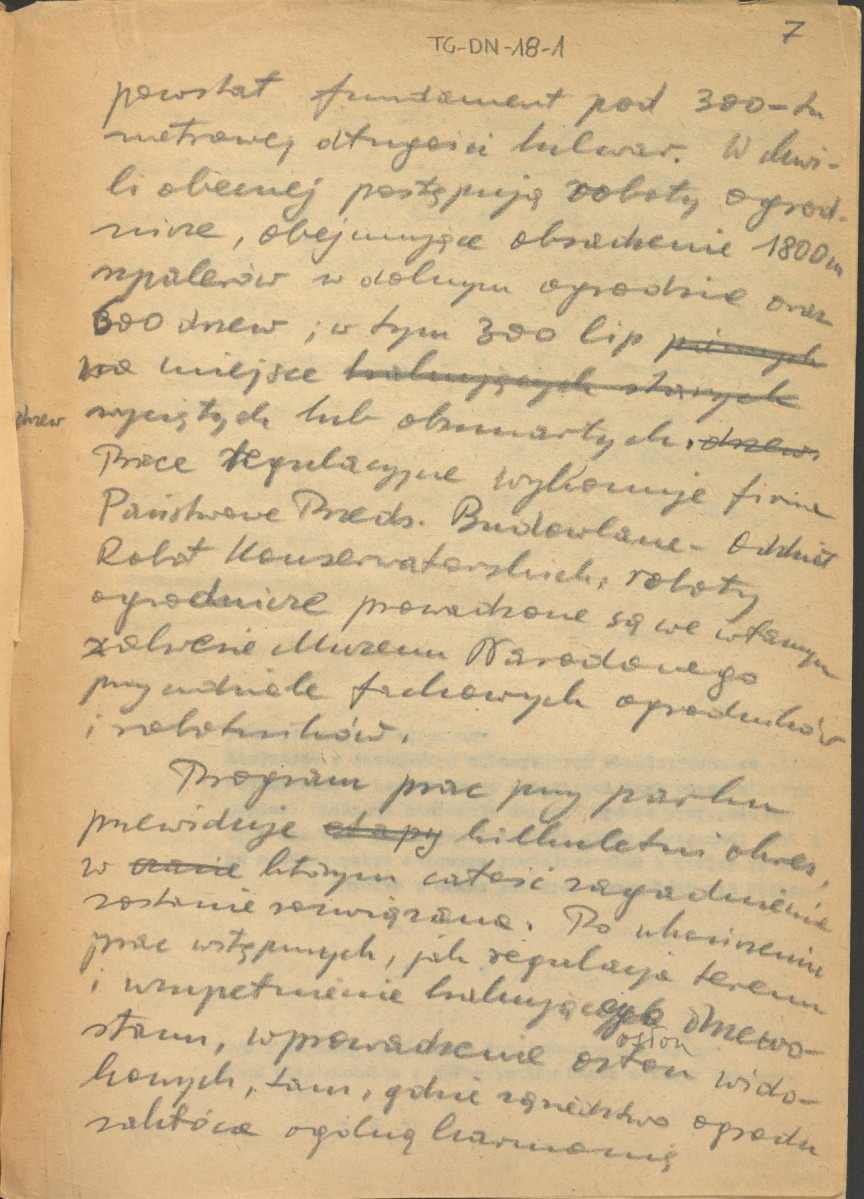 TG-DN-18-1
7
powstał fundament pod 300-tu
metrowej długości bulwar. W chwi-
li obecnej postępują roboty ogrod-
nicze, obejmujące obsadzenie 1800 m
szpalerów w dolnym ogrodzie oraz
600 drzew, w tym 300 lip
na miejsce brakujących starych
drzew
wyciętych lub obumartych. drzew.
Prace regulacyjne wykonuje firma
Państwowe Przeds. Budowlane - Oddział
Robót Konserwatorskich, roboty
ogrodnicze prowadzone są we własnym
zakresie Muzeum Narodowego
przy udziale fachowych ogrodników
i robotników.
Program prac przy parku
przewiduje etapy kilkuletni okres,
w czasie którym całość zagadnienia
zostanie rozwiązana. Po ukończeniu
prac wstępnych, jak regulacja terenu
i uzupełnienie brakującego drzewo-
stanu, wprowadzenie osłon wido-
osłon
kowych, tam, gdzie sąsiedztwo ogrodu
zakłóca ogólną harmonię